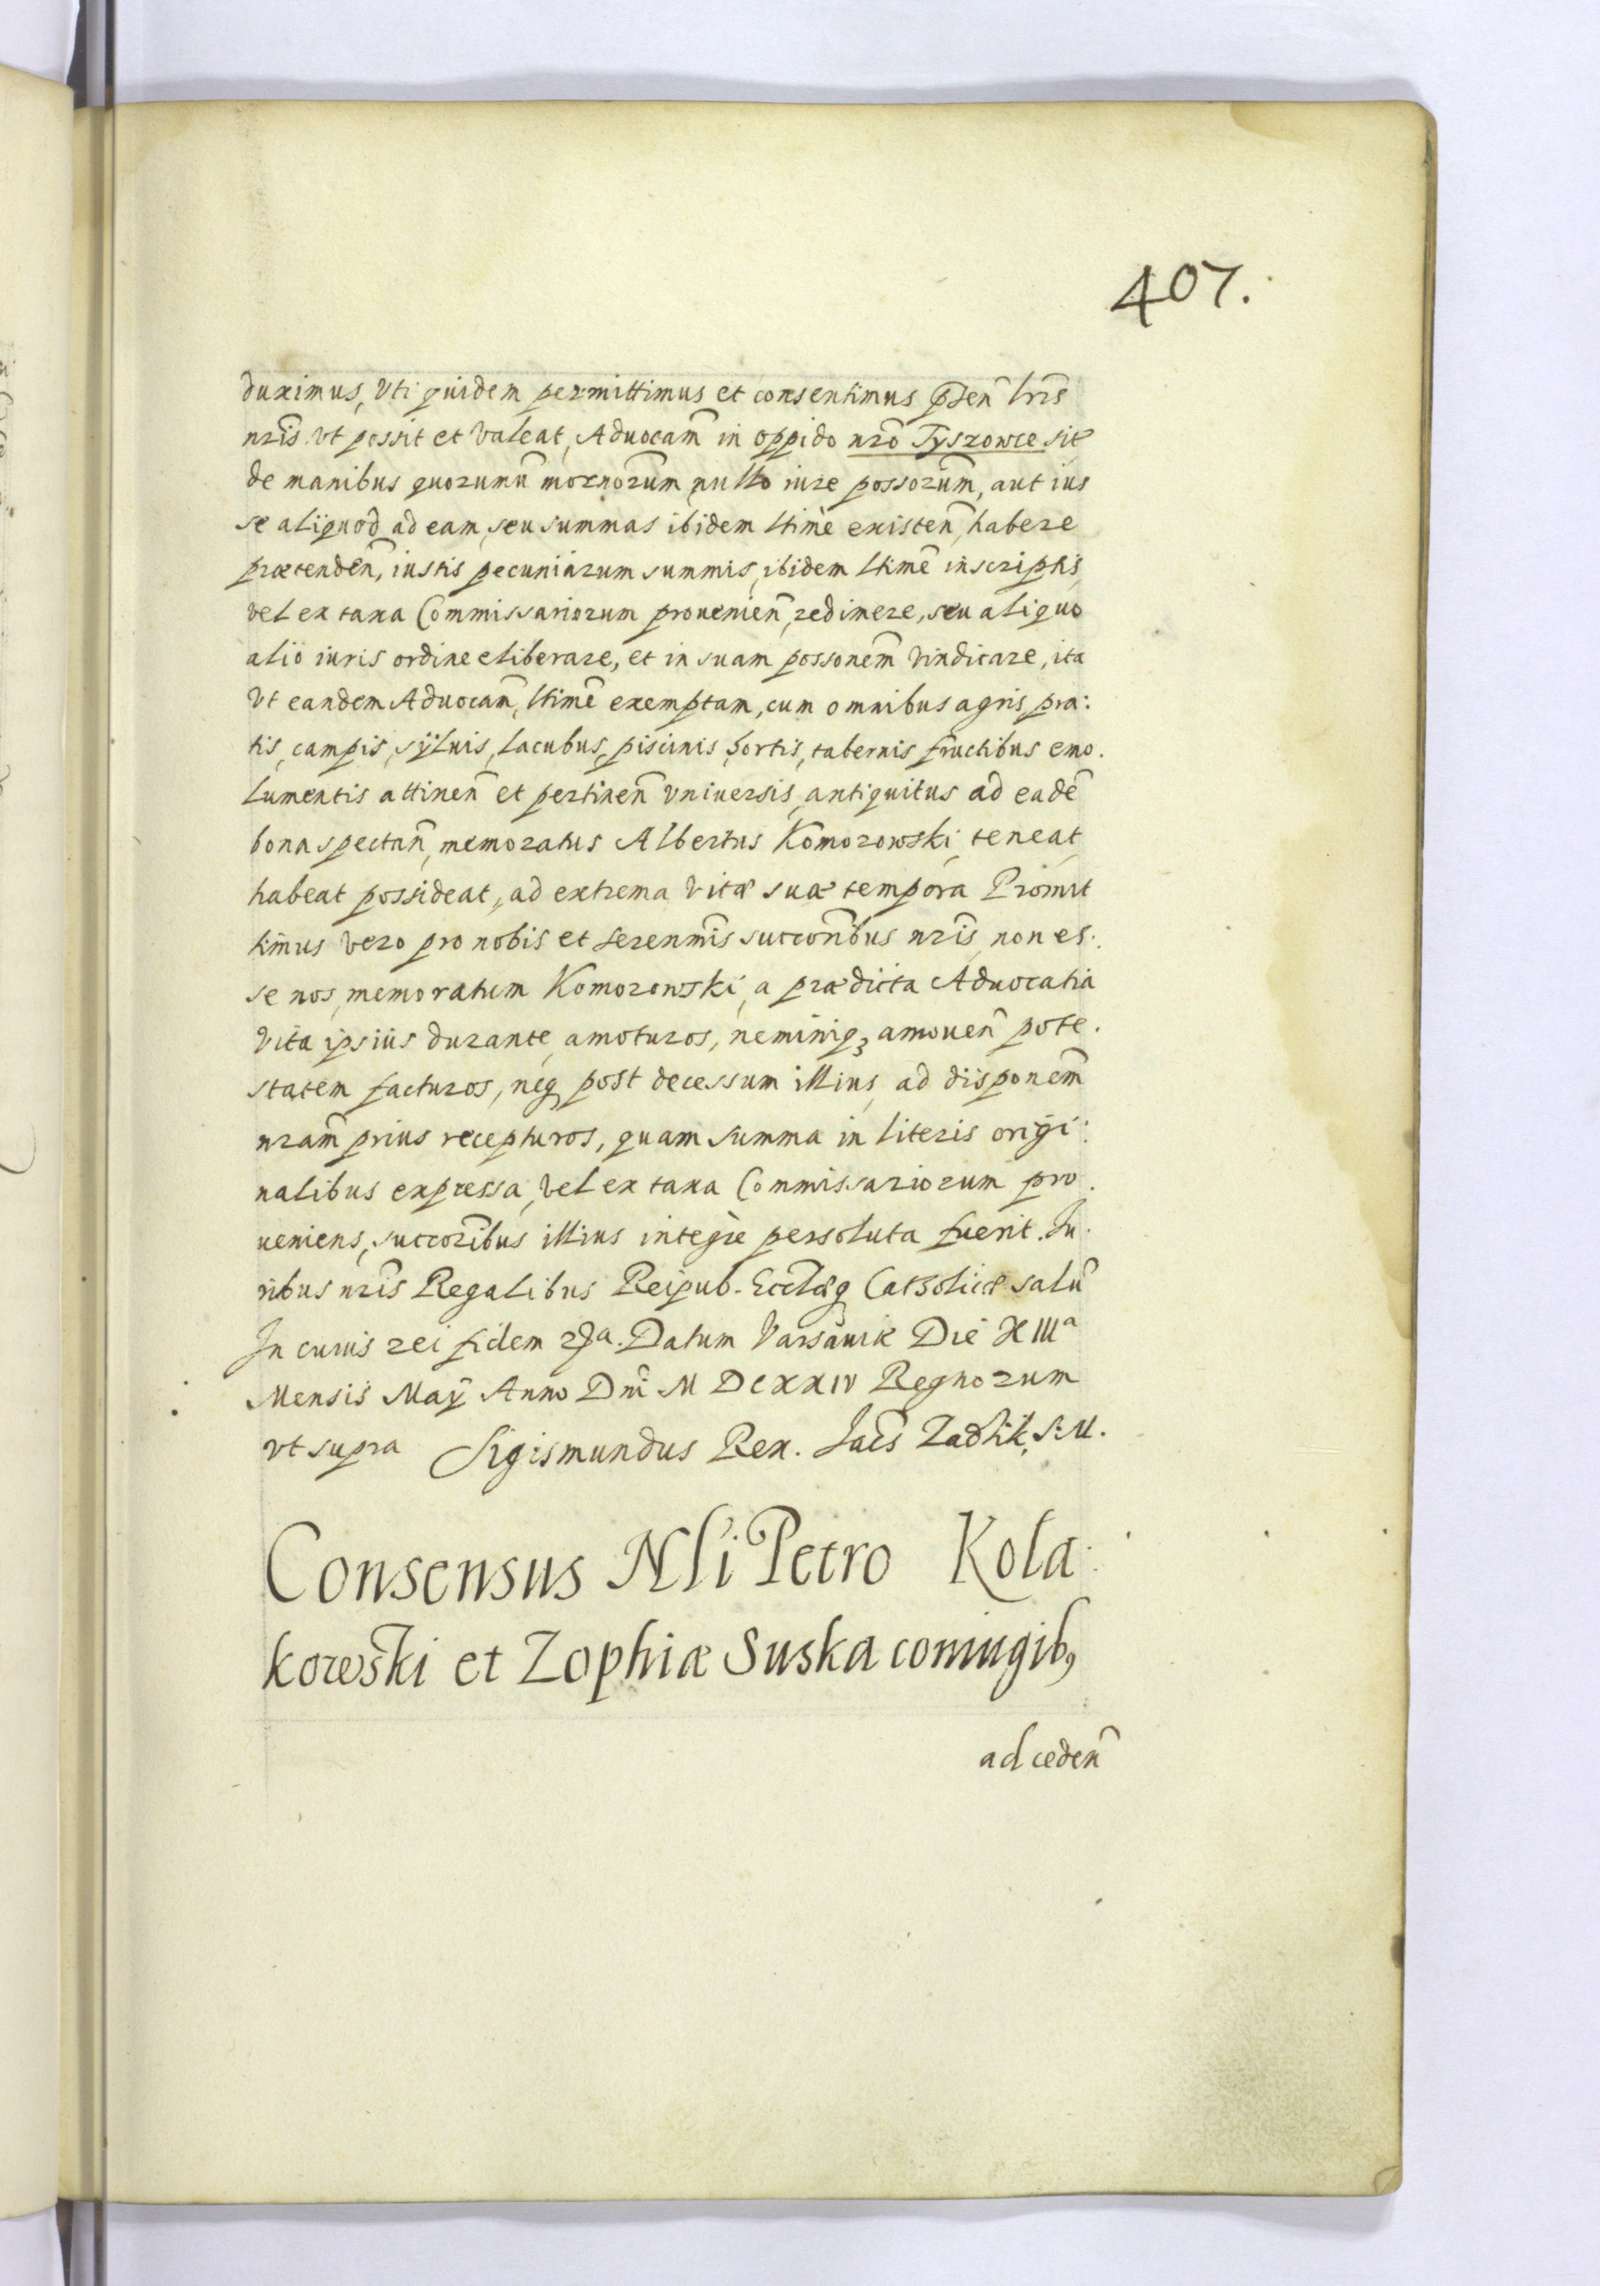 407.
duximus, Uti quidem permittimus et consentimus p̃sen̄ lr̃is
nr̃is vt possit et valeat, Aduocam̃ in oppido nr̃o Tyszowce sit̃
de manibus quorumũ mornor̃um nullo iure possor̃um, aut ius
se aliquod ad eam, seu summas ibidem ltimè existeñ, habere
prætendeñ, iustis pecuniarum summis, ibidem ltimẽ inscriptis
vel ex taxa Commissariorum proueniẽn, redimere, seu aliquo
alio iuris ordine eliberare, et in suam possonem̃ vindicare, ita
Vt eandem Aduocam̃, ltimẽ exemptam, cum omnibus agris pra:
tis, campis, syluis, lacubus, piscinis, hortis, tabernis fructibus emo.
lumentis attineñ et pertineñ vniuersis, antiquitus ad eadẽ
bona spectañ, memoratus Albertus Komorowski, teneat
habeat possideat, ad extrema vitæ suæ tempora Promit
timus vero pro nobis et serenm̃is succor̃ibus nr̃is, non es.
se nos, memoratum Komorowski, a prædicta Aduocatia
vita ipsius durante, amoturos, neminiqꝫ amouen̄ pote.
statem facturos, neqꝫ post decessum illius, ad disponem̃
nram̃ prius recepturos, quam summa in literis origi:
nalibus expressa, vel ex taxa Commissariorum pro.
ueniens, succor̃ibus illius integre persoluta fuerit. Iu.
ribus nr̃is Regalibus Reipub. Ecclæ̃qꝫ Catholicæ salũ
In cuius rei fidem &a. Datum Varsauiæ Die XIIIa
Mensis Maÿ Anno Dñi M DCXXIV Regnorum
vt supra Sigismundus Rex. Iac̃s Zadzik, S. M.
Consensus Nli Petro Kola:
kowski et Zophiæ Suska coniugibꝫ
ad cedeñ